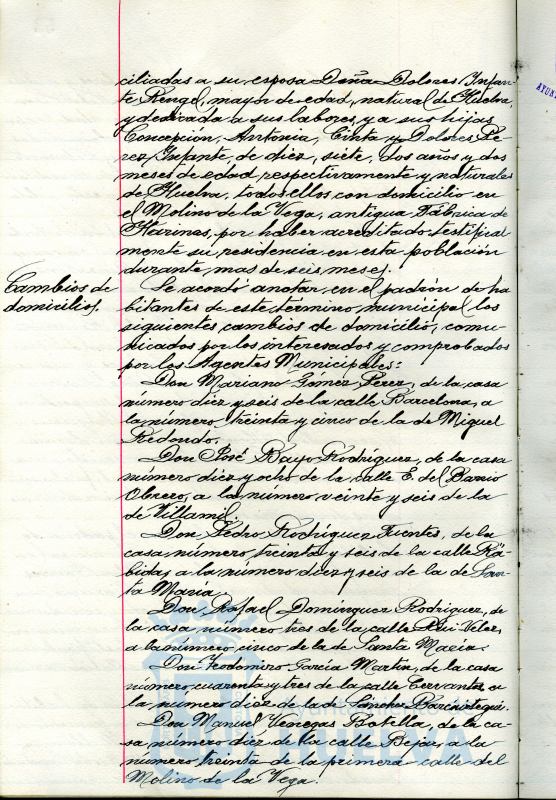 ciliadas a su esposa Doña Dolores Infan-
te Rengel, mayor de edad, natural de Huelva,
y dedicada a sus labores, y a sus hijas
Concepción, Antonia, Cinta y Dolores Pé-
rez Infante, de diez, siete, dos años y dos
meses de edad respectivamente, y naturales
de Huelva, todos ellos con domicilio en
el Molino de la Vega, antigua Fábrica de
Harinas, por haber acreditado testifical
mente su residencia en esta población
durante mas de seis meses.
Cambios de
domicilios.
Se acordó anotar en el padrón de ha-
bitantes de este término municipal los
siguientes cambios de domicilio, comu-
nicados por los interesados y comprobados
por los Agentes Municipales:
Don Mariano Gomez Perez, de la casa
número diez y seis de la calle Barcelona, a
la número treinta y cinco de la de Miguel
Redondo.
Don José Rayo Rodríguez, de la casa
número diez y ocho de la calle E. del Barrio
Obrero, a la número veinte y seis de la
de Villamil.
Don Pedro Rodríguez Fuentes, de la
casa número treinta y seis de la calle Rá-
bida, a la número diez y seis de la de San-
ta María.
Don Rafael Dominguez Rodriguez, de
la casa número tres de la calle Rui-Velez,
a la número cinco de la de Santa Maria.
Don Teodomiro García Martin, de la casa
número cuarenta y tres de la calle Cervantes, a
la número doce de la de Sánchez Barcaiztegui.
Don Manuel Venegas Botella, de la ca-
sa número diez de la calle Bejar, a la
número treinta de la primera calle del
Molino de la Vega.
HUELVA